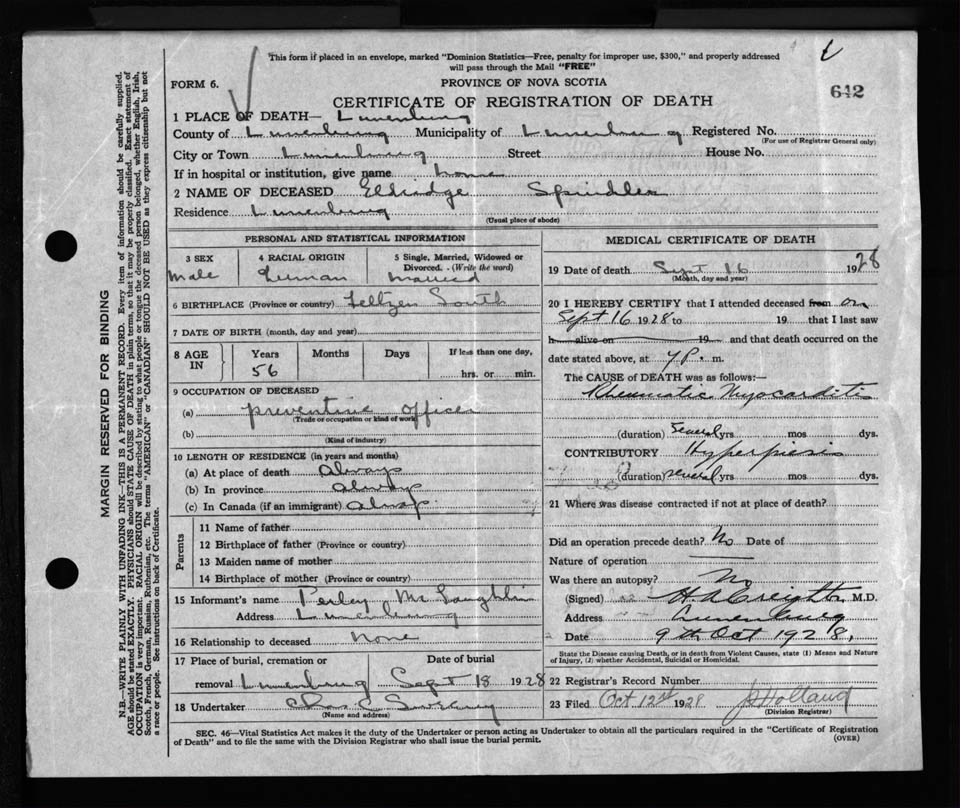 This form if placed in an envelope, marked "Dominion Statistics—Free, penalty for improper use, $300," and properly addressed
will pass through the Mail "FREE"
FORM 6.
PROVINCE OF NOVA SCOTIA
642
CERTIFICATE OF REGISTRATION OF DEATH
1 PLACE OF DEATH— Lunenburg
County of Lunenburg Municipality of Lunenburg Registered No.
(For use of Registrar General only)
City or Town Lunenburg Street House No.
If in hospital or institution, give name home
2 NAME OF DECEASED Elbridge Spindler
Residence Lunenburg
(Usual place of abode)
PERSONAL AND STATISTICAL INFORMATION
3 SEX 4 RACIAL ORIGIN 5 Single, Married, Widowed or
Divorced. (Write the word)
Male German Married
6 BIRTHPLACE (Province or country) Feltzen South
7 DATE OF BIRTH (month, day and year)
8 AGE IN Years Months Days If less than one day,
56 hrs. or min.
9 OCCUPATION OF DECEASED
(a) preventive officer
(Trade or occupation or kind of work)
(b)
(Kind of industry)
10 LENGTH OF RESIDENCE (in years and months)
(a) At place of death always
(b) In province always
(c) In Canada (if an immigrant) always
Parents
11 Name of father
12 Birthplace of father (Province or country)
13 Maiden name of mother
14 Birthplace of mother (Province or country)
15 Informant's name Perley McLaughlin
Address Lunenburg
16 Relationship to deceased none
17 Place of burial, cremation or Date of burial
removal Lunenburg Sept 18 1928
18 Undertaker Chas Sweeny
(Name and address)
MEDICAL CERTIFICATE OF DEATH
19 Date of death Sept 16 1928
(Month, day and year)
20 I HEREBY CERTIFY that I attended deceased from on
Sept 16 1928 to 19 that I last saw
h alive on 19 and that death occurred on the
date stated above, at 7 P. m.
The CAUSE of DEATH was as follows:—
Rheumatic Myocarditis
(duration) several yrs mos dys.
CONTRIBUTORY Hyperpiesis
(duration) several yrs. mos. dys.
21 Where was disease contracted if not at place of death?
Did an operation precede death? No Date of
Nature of operation
Was there an autopsy? No
(Signed) H A Creighton M.D.
Address Lunenburg
Date 9th Oct 1928.
State the Disease causing Death, or in death from Violent Causes, state (1) Means and Nature
of Injury, (2) whether Accidental, Suicidal or Homicidal.
22 Registrar's Record Number
23 Filed Oct 12 1928 J Holland
(Division Registrar)
SEC. 46—Vital Statistics Act makes it the duty of the Undertaker or person acting as Undertaker to obtain all the particulars required in the "Certificate of Registration
of Death" and to file the same with the Division Registrar who shall issue the burial permit.
(OVER)
MARGIN RESERVED FOR BINDING
N.B.—WRITE PLAINLY WITH UNFADING INK—THIS IS A PERMANENT RECORD. Every item of information should be carefully supplied.
AGE should be stated EXACTLY. PHYSICIANS should STATE CAUSE OF DEATH in plain terms, so that it may be properly classified. Exact statement of
OCCUPATION is very important. RACIAL ORIGIN will be described by stating to what people or tongue the deceased person belonged, whether English, Irish,
Scotch, French, German, Russian, Ruthenian, etc. The terms "AMERICAN" or "CANADIAN" SHOULD NOT BE USED as they express citizenship but not
a race or people. See instructions on back of Certificate.